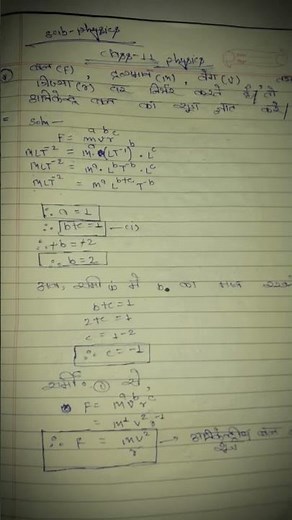 Sub-physics
class-11 physics
बल (F), द्रव्यमान (m), वेग (v)
त्रिज्या (r) पर निर्भर करता है, तो
अभिकेन्द्र बल का सूत्र ज्ञात करें।
Soln-
F = m^a v^b r^c
MLT^-2 = m^a. (LT^-1)^b. L^c
MLT^-2 = m^a. L^b T^-b. L^c
MLT^-2 = m^a L^b+c T^-b
∴ a = 1
∴ b+c = 1 —(1)
∴ +b = +2
∴ b = 2
अब, समी० में b का मान
b+c = 1
2+c = 1
c = 1-2
∴ c = -1
समी० से,
F = m^a v^b r^c
= m^1 v^2 r^-1
∴ F = mv^2/r → अभिकेन्द्रीय बल